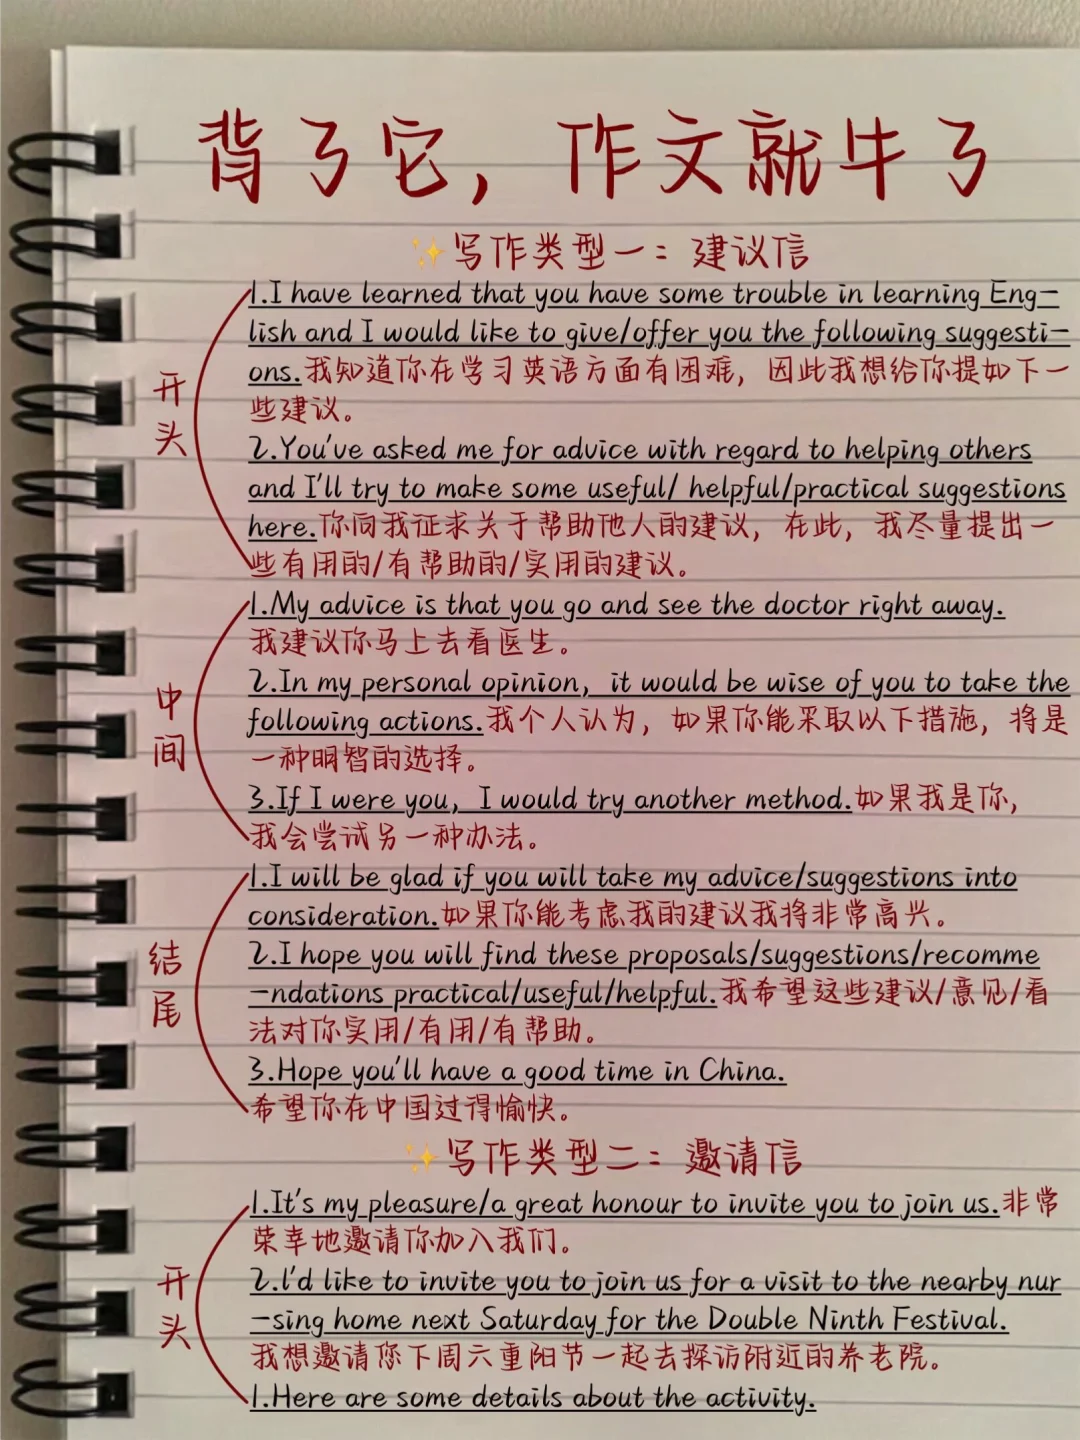 背了它，作文就牛了
✨写作类型一：建议信
开头
1.I have learned that you have some trouble in learning Eng-
lish and I would like to give/offer you the following suggesti-
ons.我知道你在学习英语方面有困难，因此我想给你提如下一
些建议。
2.You've asked me for advice with regard to helping others
and I'll try to make some useful/ helpful/practical suggestions
here.你向我征求关于帮助他人的建议，在此，我尽量提出一
些有用的/有帮助的/实用的建议。
中间
1.My advice is that you go and see the doctor right away.
我建议你马上去看医生。
2.In my personal opinion，it would be wise of you to take the
following actions.我个人认为，如果你能采取以下措施，将是
一种明智的选择。
3.If I were you，I would try another method.如果我是你，
我会尝试另一种办法。
结尾
1.I will be glad if you will take my advice/suggestions into
consideration.如果你能考虑我的建议我将非常高兴。
2.I hope you will find these proposals/suggestions/recomme
-ndations practical/useful/helpful.我希望这些建议/意见/看
法对你实用/有用/有帮助。
3.Hope you'll have a good time in China.
希望你在中国过得愉快。
✨写作类型二：邀请信
开头
1.It's my pleasure/a great honour to invite you to join us.非常
荣幸地邀请你加入我们。
2.l'd like to invite you to join us for a visit to the nearby nur
-sing home next Saturday for the Double Ninth Festival.
我想邀请您下周六重阳节一起去探访附近的养老院。
1.Here are some details about the activity.